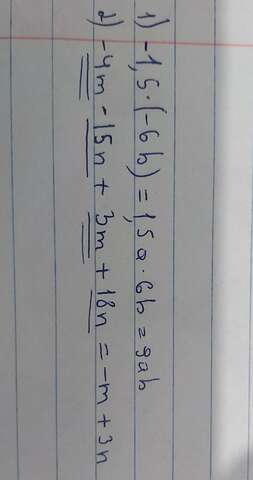 1) -1,5·(-6b)=1,5a·6b=9ab
2) -4m-15n+3m+18n=-m+3n